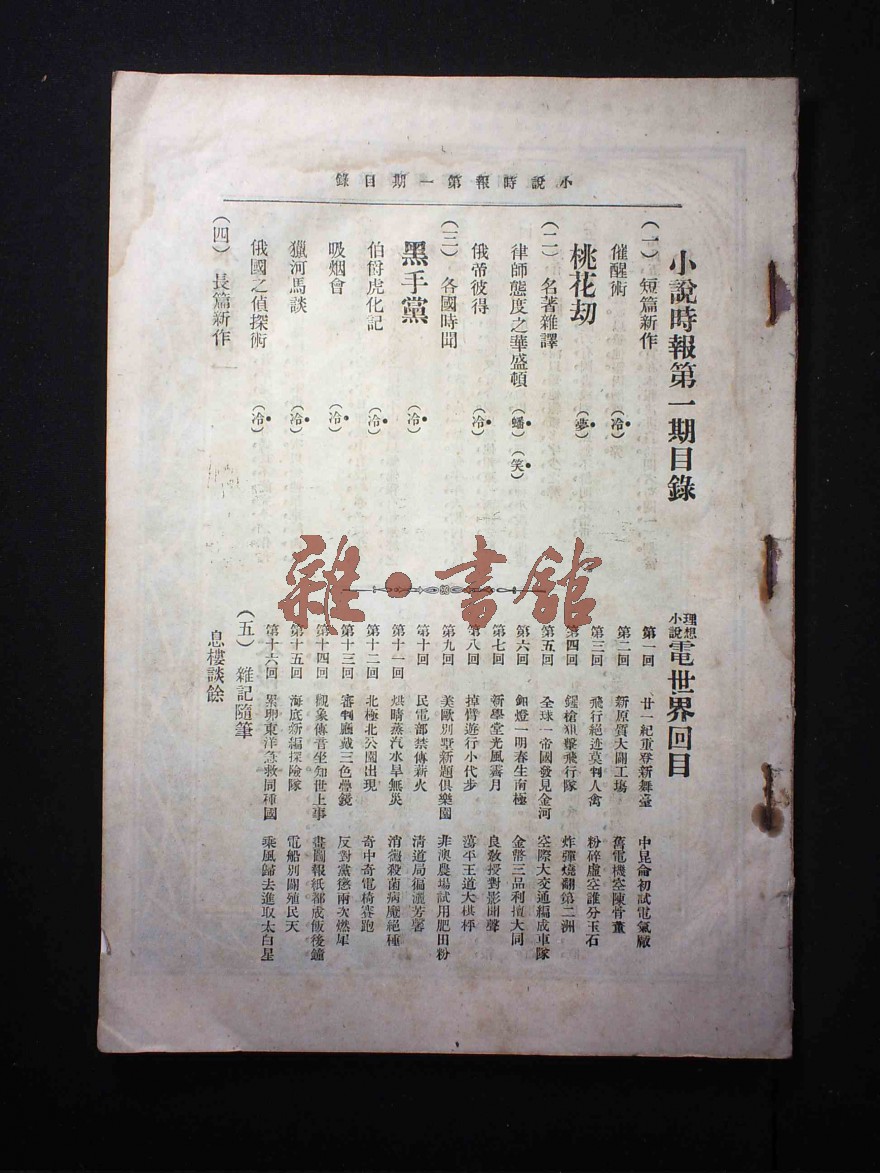 小說時報第一期目錄
小說時報第一期目錄
（一）　短篇新作
催醒術　（冷）
桃花劫　（夢）
（二）　名著雜譯
律師態度之華盛頓　（蟠）（笑）
俄帝彼得　（冷）
（三）　各國時聞
黑手黨　（冷）
伯爵虎化記　（冷）
吸烟會　（冷）
獵河馬談　（冷）
俄國之偵探術　（冷）
（四）　長篇新作
理想小說電世界回目
第一回　廿一紀重登新舞臺　中昆侖初試電氣廠
第二回　新原質大鬧工塲　舊電機空陳骨董
第三回　飛行絕迹莫判人禽　粉碎虛空誰分玉石
第四回　鏜槍狙擊飛行隊　炸彈燒翻第二洲
第五回　全球一帝國發見金河　空際大交通編成車隊
第六回　鈤燈一明春生南極　金幣三品利擅大同
第七回　新學堂光風霽月　良敎授對影聞聲
第八回　掉臂遊行小代步　蕩平王道大棋枰
第九回　美歐別墅新題俱樂園　非澳農場試用肥田粉
第十回　民電部禁傳薪火　清道局徧灑芳馨
第十一回　烘晴蒸汽水旱無災　消毒殺菌病魔絕種
第十二回　北極北公園出現　奇中奇電椅賽跑
第十三回　審判廳戴三色學鏡　反對黨懲兩次燃犀
第十四回　觀象傳音坐知世上事　畫圖報紙都成飯後鐘
第十五回　海底新編探險隊　電船別闢殖民天
第十六回　累卵東洋急救同種國　乘風歸去進取太白星
（五）　雜記隨筆
息樓談餘
雜·書舘